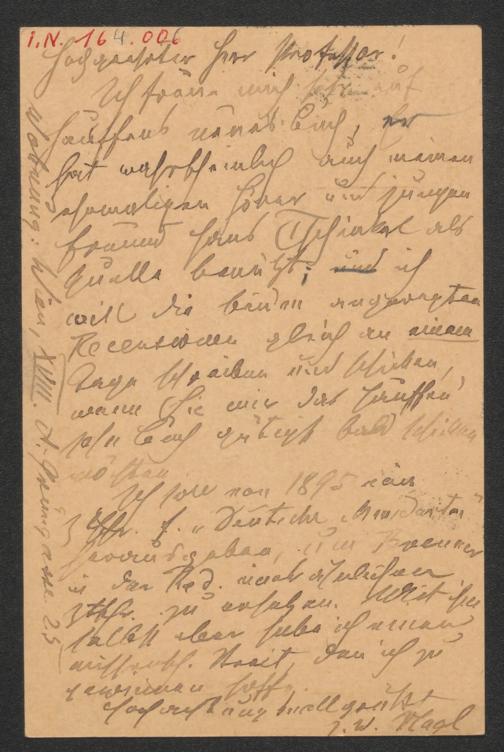 I.N. 164.006
Hochgeehrter Herr Professor!
Ich freue mich sehr auf
Hauffens neues Buch, er
hat wahrscheinlich auch meinen
ehemaligen Hörer und jungen
Freund Hans Tschinkel als
Quelle benützt; und ich
will die beiden angeregten
Recensionen gleich an einem
Tage schreiben und schicken,
wenn Sie mir das Hauffen'
sche Buch gütigst bald schicken
möchten.
Ich soll von 1895 eine
Ztschr. f. "Deutsche Mundarten"
herausgeben, um Brenner
in der Red. ähnlicher
Ztschr. zu ersetzen. Mit ihm
selbst aber habe ich einen
wissensch. Streit, den ich zu
gewinnen hoffe.
Hochachtungsvoll grüßt
J. W. Nagl
Wohnung: Wien, XVIII. 25